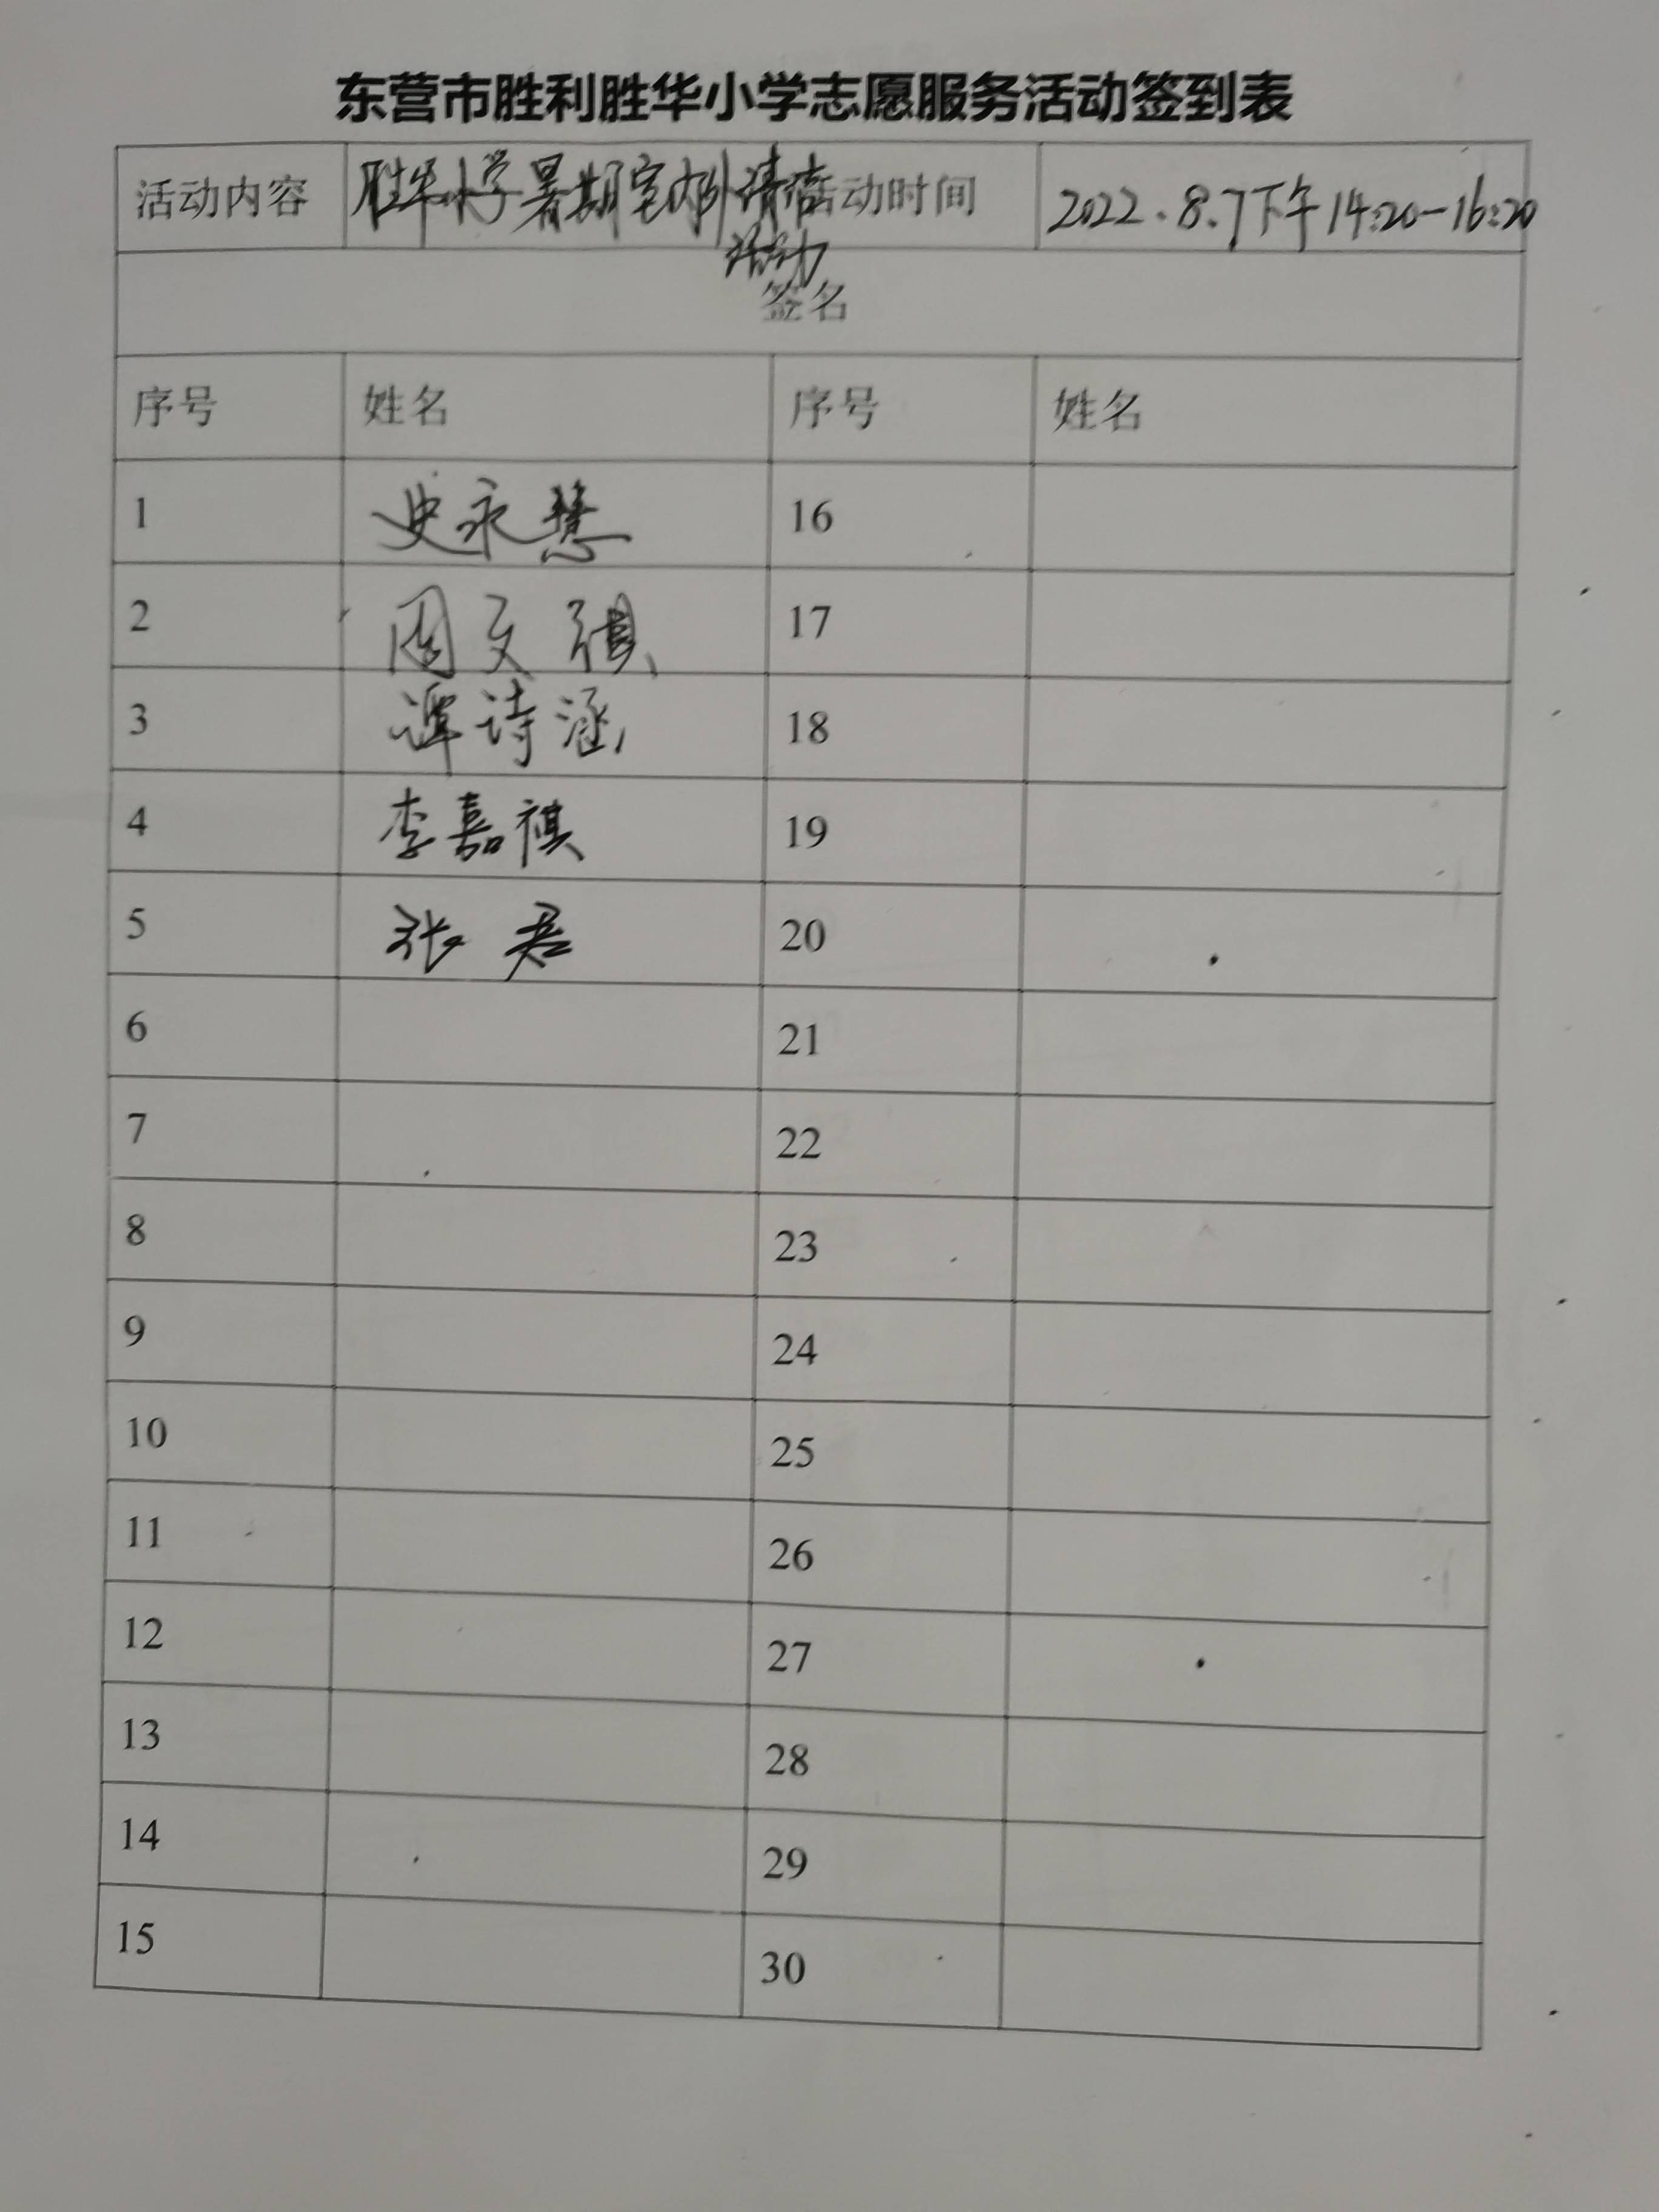 东营市胜利胜华小学志愿服务活动签到表
活动内容 胜华小学暑期室内外清洁活动 活动时间 2022.8.7下午14:20-16:20
签名
序号 姓名 序号 姓名
1 史永慧 16
2 周文祺 17
3 谭诗涵 18
4 李嘉祺 19
5 张君 20
6 21
7 22
8 23
9 24
10 25
11 26
12 27
13 28
14 29
15 30